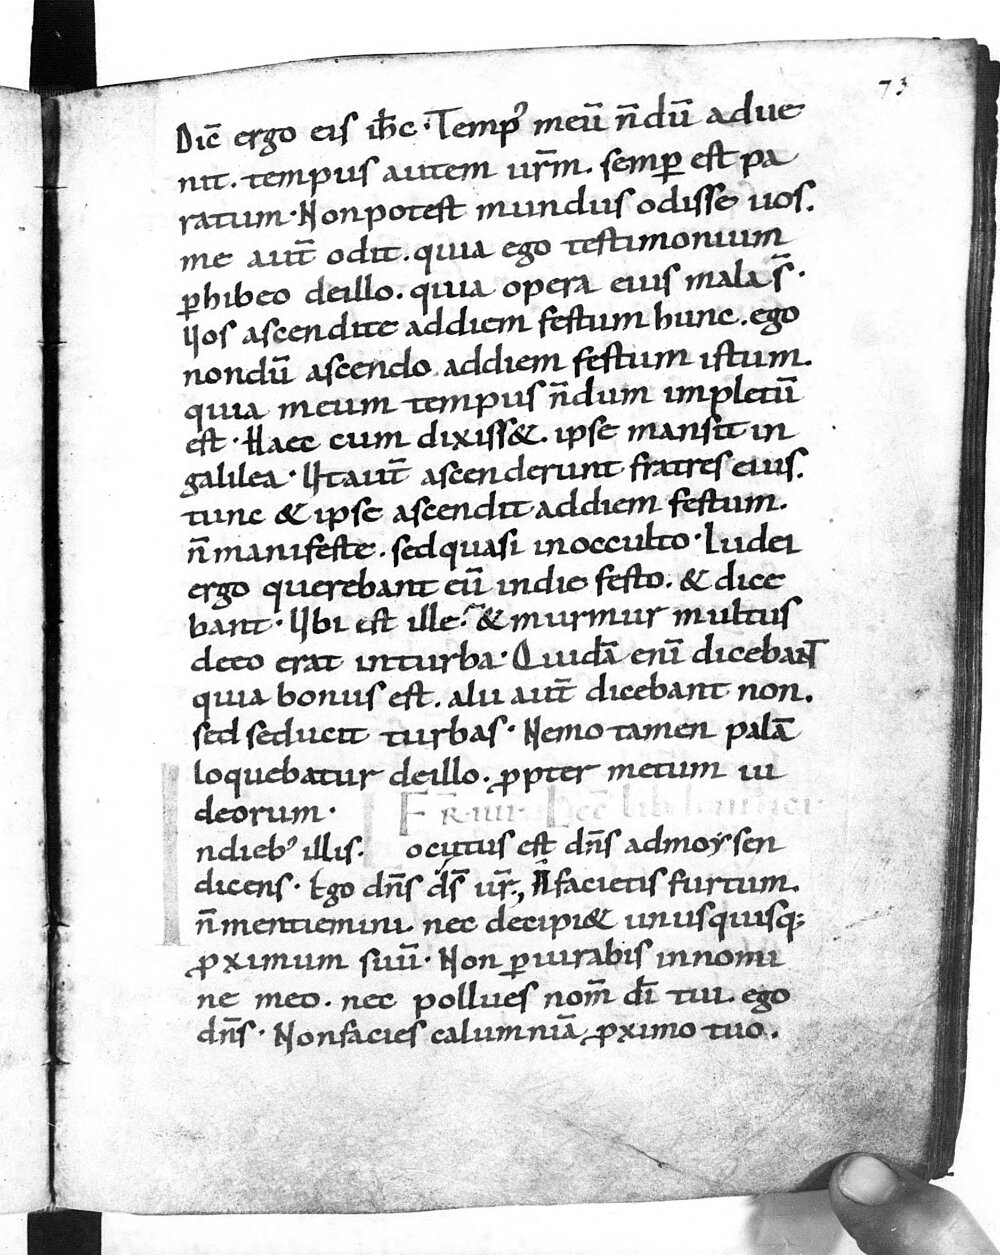 73
Dic̄ ergo eis ih̄c · Temp᾽ meū n̄dū adue
nit. tempus autem ur̄m. semꝑ est pa
ratum · Non potest mundus odisse uos.
me aut̄ odit. quia ego testimonium
ꝑhibeo deillo. quia opera eius mala s̄ ·
Uos ascendite addiem festum hunc. ego
nondū ascendo addiem festum istum.
quia meum tempus n̄dum impletū
est · Haec cum dixiss&. ipse mansit in
galilea · Ut aut̄ ascenderunt fratres eius.
tunc & ipse ascendit addiem festum.
n̄ manifeste. sed quasi inocculto · Iudei
ergo querebant eū indie festo. & dice
bant · Ubi est ille? & murmur multus
deeo erat inturba · Quidā enī dicebant
quia bonus est. alii aut̄ dicebant non.
sed seducit turbas · Nemo tamen palā
loquebatur deillo. ꝓpter metum iu
deorum · FR̄ IIII · Lec̄ lib leuitici ·
Indieb᾽ illis. Locutus est dn̄s admoẏsen
dicens · Ego dn̄s d̄s ur̄, N̄ facietis furtum.
n̄ mentiemini. nec decipi& unusquisq;
ꝓximum suū · Non ꝑiurabis innomi
ne meo. nec pollues nom̄ dī tui. ego
dn̄s · Non facies calumniā ꝓximo tuo.